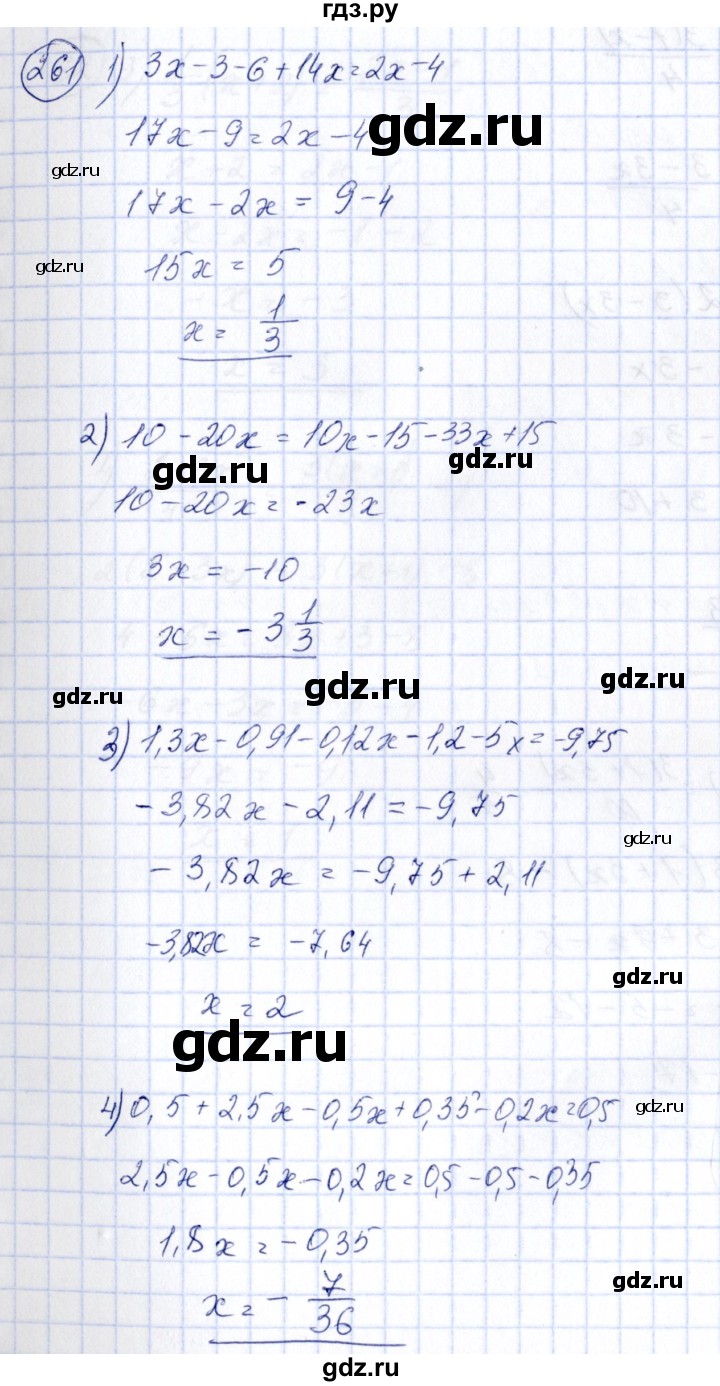 гдз.ру
261 1) 3x-3-6+14x=2x-4
gdz.ru
17x-9=2x-4
gdz.ru
17x-2x=9-4
gdz.ru
15x=5
x=1/3
2) 10-20x=10x-15-33x+15
gdz.ru gdz.ru
10-20x=-23x
3x=-10
x=-3 1/3
gdz.ru gdz.ru gdz.ru
3) 1,3x-0,91-0,12x-1,2-5x=-9,75
-3,82x-2,11=-9,75
gdz.ru
-3,82x=-9,75+2,11
-3,82x=-7,64
gdz.ru
x=2
gdz.ru
4) 0,5+2,5x-0,5x+0,35-0,2x=0,5
gdz.ru
2,5x-0,5x-0,2x=0,5-0,5-0,35
1,8x=-0,35
gdz.ru
x=-7/36
gdz.ru